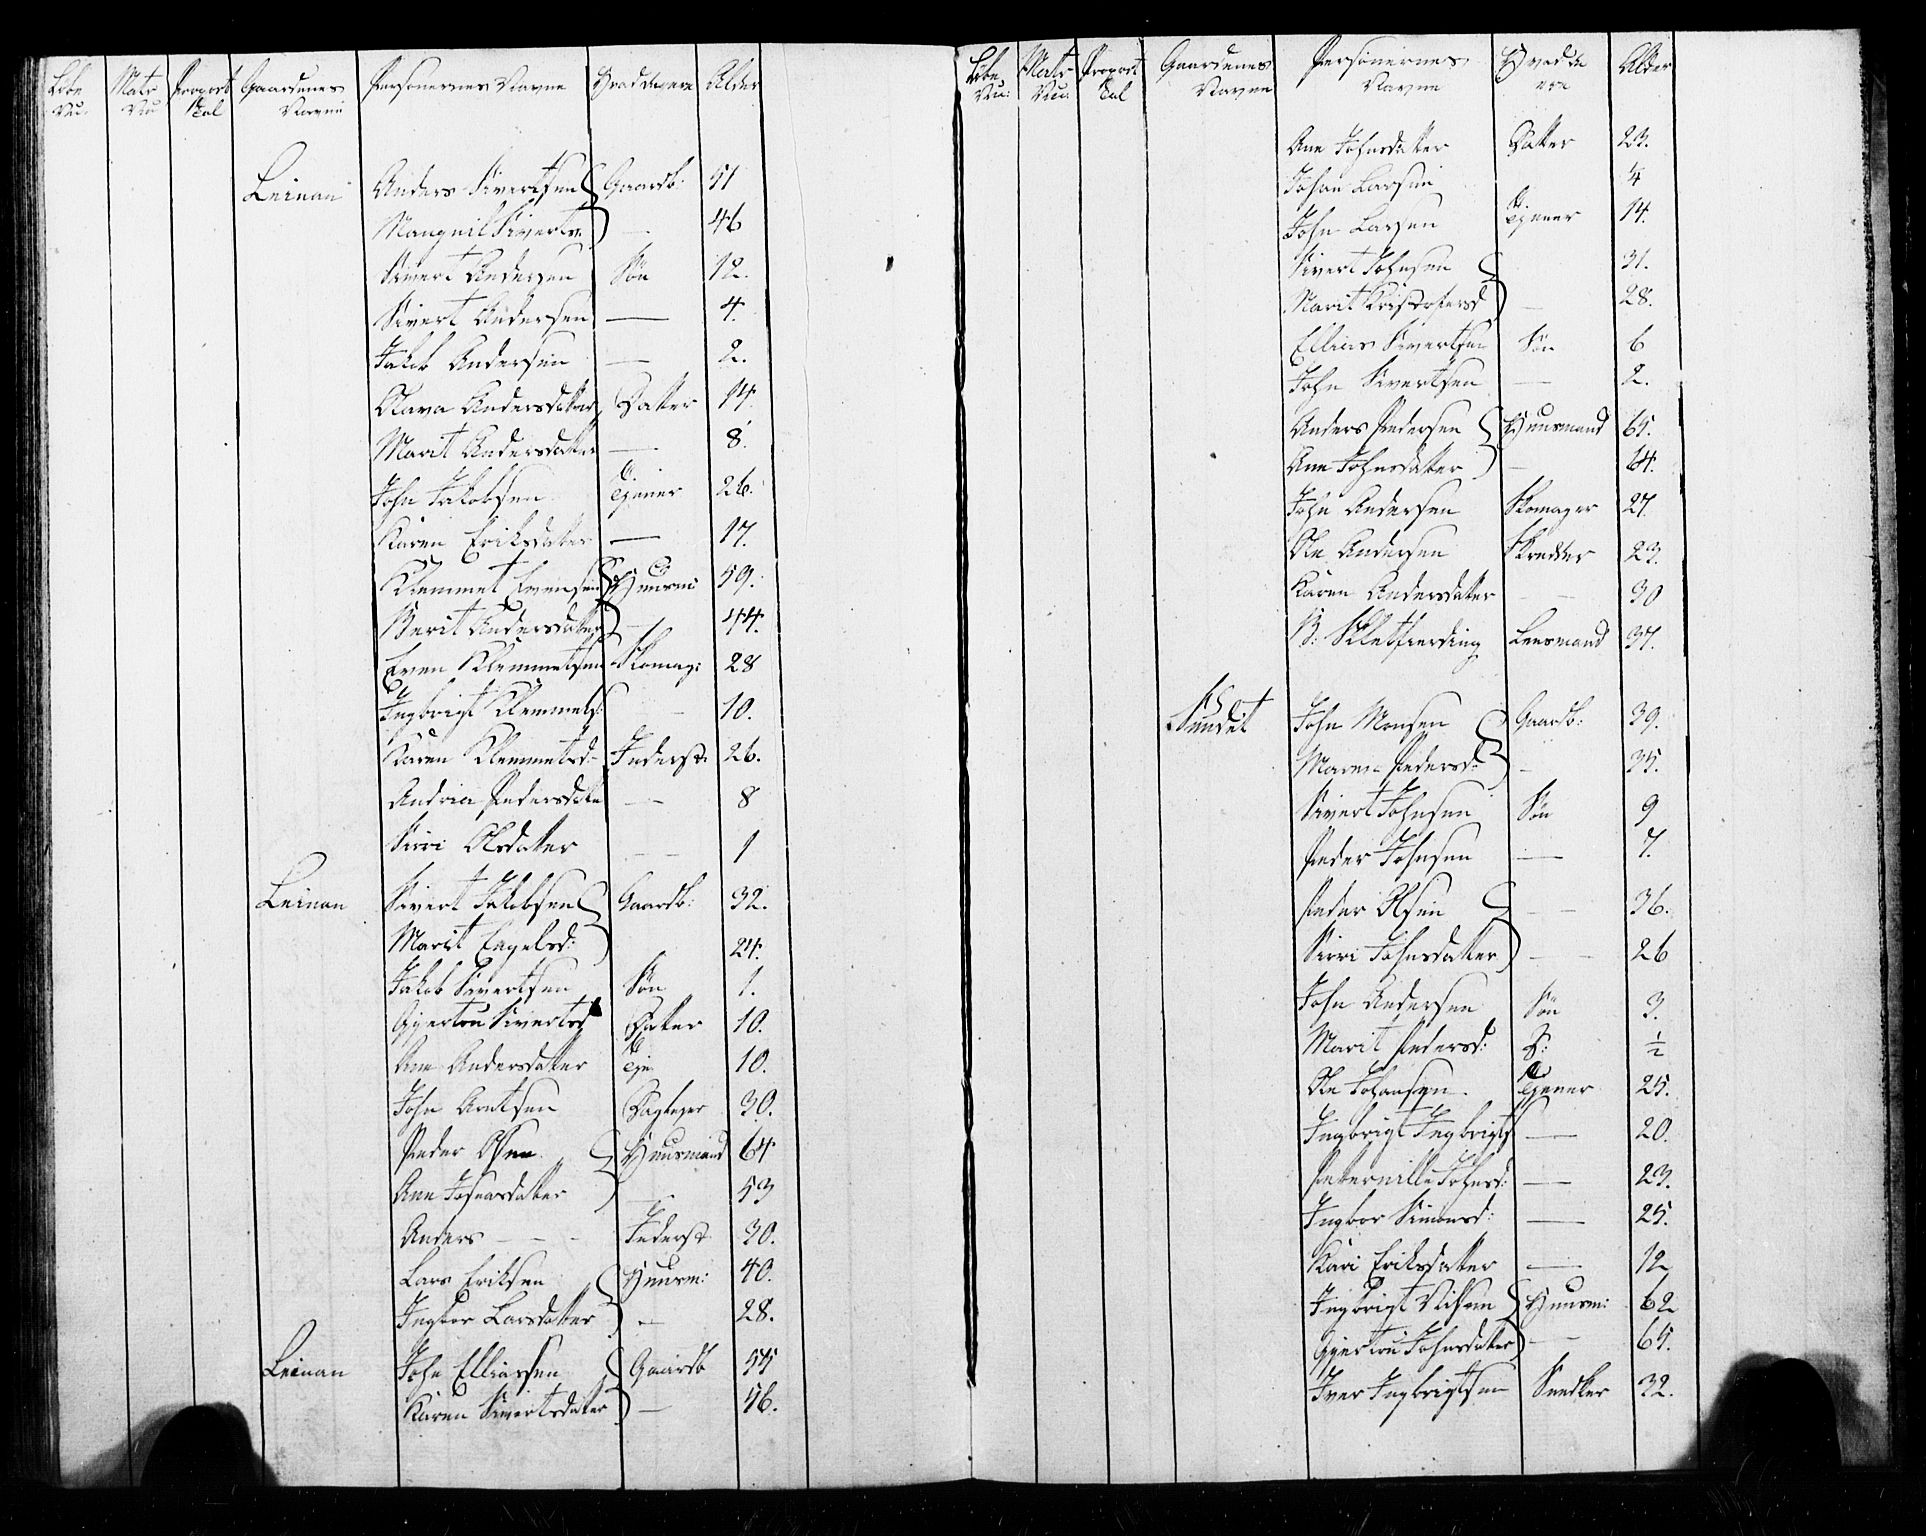 Løbe Nu: Matr Nu Proport Tal Gaardenes Navne Personernes Navne Hvad de ere Alder
Leinan Anders Sivertsen Gaardb: 51
Mangnil Sivertsd. — 46
Sivert Andersen Søn 12.
Sivert Andersen — 4.
Jakob Andersen — 2.
Olava Andersdatter Datter 14.
Marit Andersdatter — 8.
John Jakobsen Tjener 26.
Karen Eriksdatter — 17.
Klemmet Evensen Huusm: 59.
Berit Andersdatter — 44.
Even Klemmetsen Skomag: 28
Ingbrigt Klemmets: — 10.
Karen Klemmetsd: Inderst: 26.
Andria Pedersdatter — 8
Sirri Olsdatter — 1
Leinan Sivert Jakobsen Gaardb: 32.
Marit Engelsd: 24.
Jakob Sivertsen Søn 1.
Gjertru Sivertsd Datter 10.
Ane Andersdatter Tje 10.
John Arntsen 30.
Peder Olsen Huusmand 64
Ane Johnsdatter — 53
Anders — — Inderst 30.
Lars Eriksen Huusm: 40.
Ingbor Larsdatter — 28.
Leinan John Elliassen Gaardb 55
Karen Sivertsdatter — 56.
Løbe Nu: Matr Nu: Proport Tal Gaardenes Navne Personernes Navne Hvad de ere Alder
Ane Johnsdatter Datter 23.
Johan Larsen 4
John Larsen Tjener 14.
Sivert Johnsen 31.
Marit Kristofersd — 28.
Ellias Sivertsen Søn 6
John Sivertsen — 2.
Anders Pedersen Huusmand 65.
Ane Johnsdatter — 64.
John Andersen Skomager 27.
Ole Andersen Skredder 23.
Karen Andersdatter — 30
B: Sletfierding Lensmand 37.
Sundet John Monsen Gaardb: 39.
Maren Pedersd: — 35.
Sivert Johnsen Søn 9
Peder Johnsen — 7.
Peder Olsen — 36.
Sirri Johnsdatter — 26
John Andersen Søn 3.
Marit Pedersd: D: ½
Ole Johansen Tjener 25.
Ingbrigt Ingbrigts — 20.
Peternille Johnsd: — 23.
Ingbor Simonsd: — 25.
Kari Eriksdatter — 12
Ingbrigt Nilsen Huusm: 62
Gjertru Johnsdatter — 65.
Iver Ingbrigtsen Snedker 32.